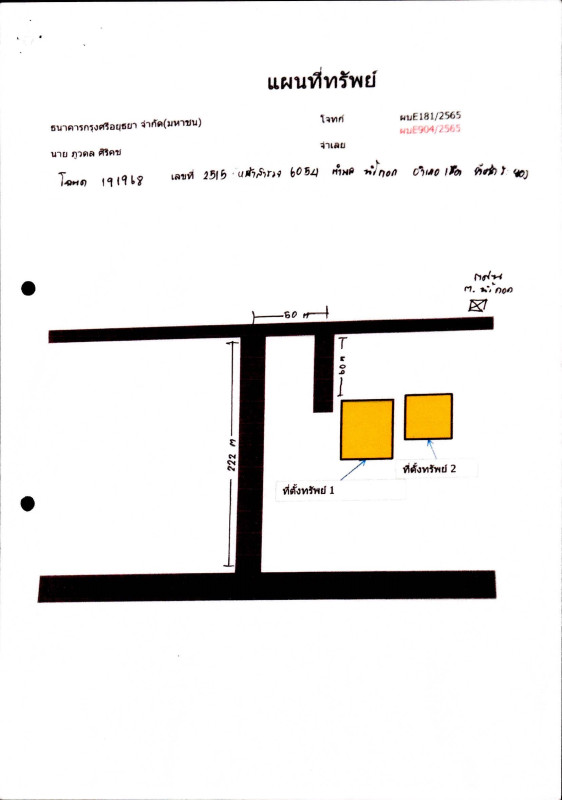 แผนที่ทรัพย์
ธนาคารกรุงศรีอยุธยา จำกัด(มหาชน) โจทก์ ผบE181/2565
ผบE904/2565
นาย ภูวดล ศิริคช จำเลย
โฉนด 191968 เลขที่ 2515 หน้าสำรวจ 6054 ตำบล น้ำคอก อำเภอ เมือง
ต. น้ำคอก
50 ม
60 ม
222 ม
ที่ตั้งทรัพย์ 2
ที่ตั้งทรัพย์ 1